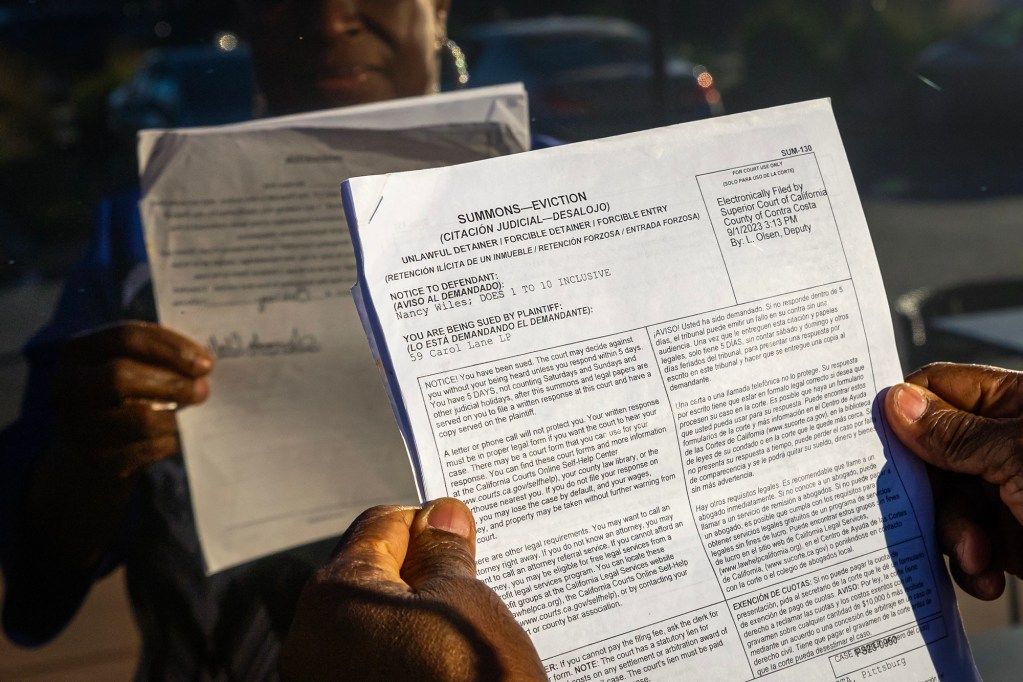 SUM-130
SUMMONS—EVICTION
(CITACIÓN JUDICIAL—DESALOJO)
UNLAWFUL DETAINER / FORCIBLE DETAINER / FORCIBLE ENTRY
(RETENCIÓN ILÍCITA DE UN INMUEBLE / RETENCIÓN FORZOSA / ENTRADA FORZOSA)
FOR COURT USE ONLY
(SOLO PARA USO DE LA CORTE)
Electronically Filed by
Superior Court of California
County of Contra Costa
9/1/2023 3:13 PM
By: L. Olsen, Deputy
NOTICE TO DEFENDANT:
(AVISO AL DEMANDADO):
Nancy Wiles; DOES 1 TO 10 INCLUSIVE
YOU ARE BEING SUED BY PLAINTIFF:
(LO ESTÁ DEMANDANDO EL DEMANDANTE):
59 Carol Lane LP
NOTICE! You have been sued. The court may decide against
you without your being heard unless you respond within 5 days.
You have 5 DAYS, not counting Saturdays and Sundays and
other judicial holidays, after this summons and legal papers are
served on you to file a written response at this court and have a
copy served on the plaintiff.
A letter or phone call will not protect you. Your written response
must be in proper legal form if you want the court to hear your
case. There may be a court form that you can use for your
response. You can find these court forms and more information
at the California Courts Online Self-Help Center
www.courts.ca.gov/selfhelp), your county law library, or the
rthouse nearest you. If you do not file your response on
, you may lose the case by default, and your wages,
ey, and property may be taken without further warning from
court.
ere are other legal requirements. You may want to call an
torney right away. If you do not know an attorney, you may
nt to call an attorney referral service. If you cannot afford an
orney, you may be eligible for free legal services from a
ofit legal services program. You can locate these
fit groups at the California Legal Services website
awhelpca.org), the California Courts Online Self-Help
ww.courts.ca.gov/selfhelp), or by contacting your
rt or county bar association.
ER: If you cannot pay the filing fee, ask the clerk for
form. NOTE: The court has a statutory lien for
costs on any settlement or arbitration award of
The court's lien must be paid
¡AVISO! Usted ha sido demandado. Si no responde dentro de 5
días, el tribunal puede emitir un fallo en su contra sin una
audiencia. Una vez que le entreguen esta citación y papeles
legales, solo tiene 5 DÍAS, sin contar sábado y domingo y otros
días feriados del tribunal, para presentar una respuesta por
escrito en este tribunal y hacer que se entregue una copia al
demandante.
Una carta o una llamada telefónica no lo protege. Su respuesta
por escrito tiene que estar en formato legal correcto si desea que
procesen su caso en la corte. Es posible que haya un formulario
que usted pueda usar para su respuesta. Puede encontrar estos
formularios de la corte y más información en el Centro de Ayuda
de las Cortes de California (www.sucorte.ca.gov), en la biblioteca
de leyes de su condado o en la corte que le quede más cerca. Si
no presenta su respuesta a tiempo, puede perder el caso por falta
de comparecencia y se le podrá quitar su sueldo, dinero y bienes
sin más advertencia.
Hay otros requisitos legales. Es recomendable que llame a un
abogado inmediatamente. Si no conoce a un abogado, puede
llamar a un servicio de remisión a abogados. Si no puede pagar a
un abogado, es posible que cumpla con los requisitos para
obtener servicios legales gratuitos de un programa de servicios
legales sin fines de lucro. Puede encontrar estos grupos sin fines
de lucro en el sitio web de California Legal Services,
(www.lawhelpcalifornia.org), en el Centro de Ayuda de las Cortes
de California, (www.sucorte.ca.gov) o poniéndose en contacto
con la corte o el colegio de abogados local.
EXENCIÓN DE CUOTAS: Si no puede pagar la cuota de
presentación, pida al secretario de la corte que le dé un formulario
de exención de pago de cuotas. AVISO: Por ley, la corte tiene
derecho a reclamar las cuotas y los costos exentos con un
gravamen sobre cualquier cantidad de $10,000 ó más recibida
mediante un acuerdo o una concesión de arbitraje en un caso de
derecho civil. Tiene que pagar el gravamen de la corte antes de
que la corte pueda desestimar el caso.
CASE
PS23-0960
Pittsburg